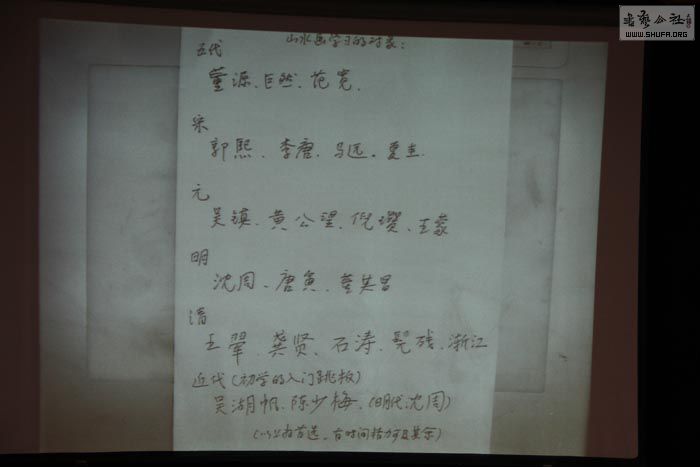 书法公社
WWW.SHUFA.ORG
山水画学习的对象:
五代
董源、巨然、范宽.
宋
郭熙、李唐、马远、夏圭
元
吴镇、黄公望、倪瓒、王蒙
明
沈周、唐寅、董其昌
清
王翚、龚贤、石涛、髡残、渐江
近代(初学的入门跳板)
吴湖帆、陈少梅、(明代沈周)
(以上为首选,有时间精力可及其余)